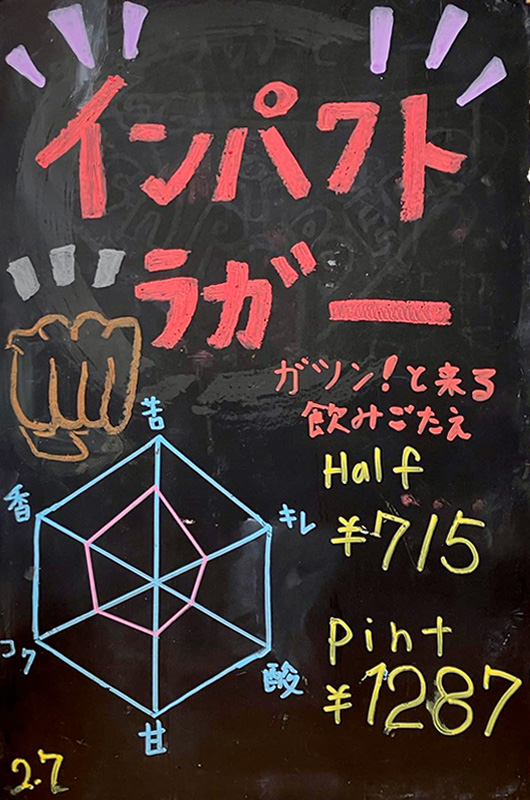 インパクト
ラガー
ガツン!と来る
飲みごたえ
Half
¥715
pint
¥1287
苦
香
キレ
コク
酸
甘
2.7